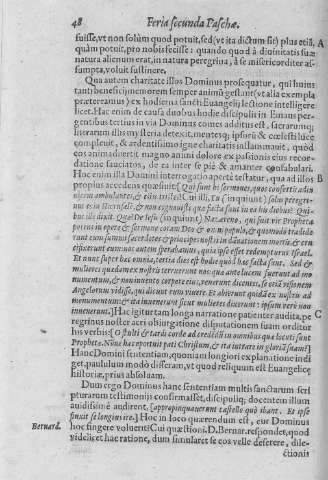 48 Feria secunda Paschæ.
fuisse, vt non solùm quod potuit, sed (vt ita dictum sit) plus etiã, A
quàm potuit, pro nobis fecisse: quando quod à diuinitatis suæ
natura alienum erat, in natura peregrina, à se misericorditer as-
sumpta, voluit sustinere.
Qua autem charitate illos Dominus prosequatur, qui huius
tanti beneficij memorem semper animũ gestant (vt alia exempla
prætereamus) ex hodierna sancti Euangelij lectione intelligere
licet. Hac enim de causa duobus hodie discipulis in Emaus per-
gentibus tertius in via Dominus comes additus est, sacrarumq;
literarum illis mysteria detexit, mentesq; ipsorũ & cœlesti luce
compleuit, & ardentissimo igne charitatis inflammauit, quòd
eos animaduertit magno animi dolore ex passionis eius recor-
datione sauciatos, de ea inter se piè & amanter confabulari.
Hoc enim illa Domini interrogatio apertè testatur, qua ad illos B
propius accedens quæsiuit: [Qui sunt hi sermones, quos confertis ad in-
uicem ambulantes, & estis tristes? Cui illi, Tu (inquiunt) solus peregri-
nus es in Hierusalẽ & non cognouisti quæ facta sunt in ea his diebus? Qui-
bus ille dixit, Quæ? De Iesu (inquiunt) Nazareno, qui fuit vir Propheta
potens in opere & sermone coram Deo & omni populo, & quomodo tradide
runt eum summi sacerdotes & principes nostri in dãnationem mortis, & cru
cifixerunt eum: nos autem sperabamus, quia ipse esset redempturus Israel.
Et nunc super hæc omnia, tertia dies est hodie quòd hæc facta sunt. Sed &
mulieres quædam ex nostris terruerunt nos, quæ ante lucem fuerunt ad mo
numentum, & non inuento corpore eius, venerunt dicentes, se etiã visionem
Angelorum vidisse, qui dicunt eum viuere. Et abierunt quidã ex nostris ad
monumentum & ita inuenerunt sicut mulieres dixerunt: ipsum verò non
inuenerunt.] Hac igitur tam longa narratione patienter audita, pe C
regrinus noster acri obiurgatione disputationem suam orditur
his verbis: [O stulti & tardi corde ad credendũ in omnibus quæ locuti sunt
Prophetæ. Nõne hæc oportuit pati Christum, & ita intrare in gloriã suam?]
Hanc Domini sententiam, quoniam longiori explanatione indi
get, paululum modò differam, vt quod reliquum est Euangelicæ
historiæ, prius absoluam.
Dum ergo Dominus hanc sententiam multis sanctarum scri
pturarum testimonijs confirmasset, discipuliq; docentem illum
auidissimè audirent, [appropinquauerunt castello quò ibant. Et ipse
finxit se longius ire.] Hoc in loco quærendum est, cur Dominus
Bernard. hoc fingere voluerit. Cui quæstioni D. Bernar. respondet, quod
videlicet hac ratione, dum simularet se eos velle deserere, dile-
ctionis